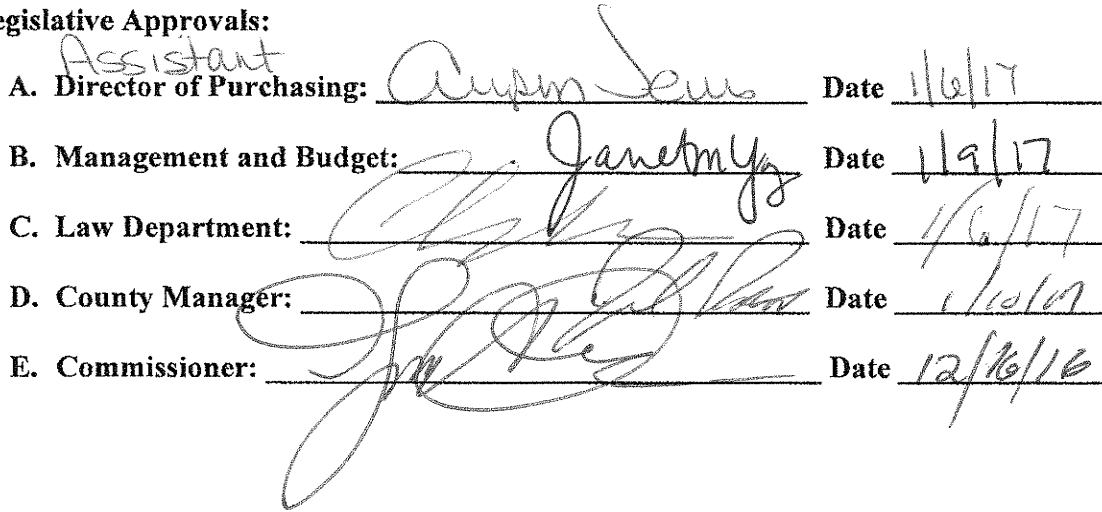 egislative Approvals:
Assistant
A. Director of Purchasing: Date 1/6/17
B. Management and Budget: Date 1/9/17
C. Law Department: Date 1/6/17
D. County Manager: Date 1/10/17
E. Commissioner: Date 12/16/16